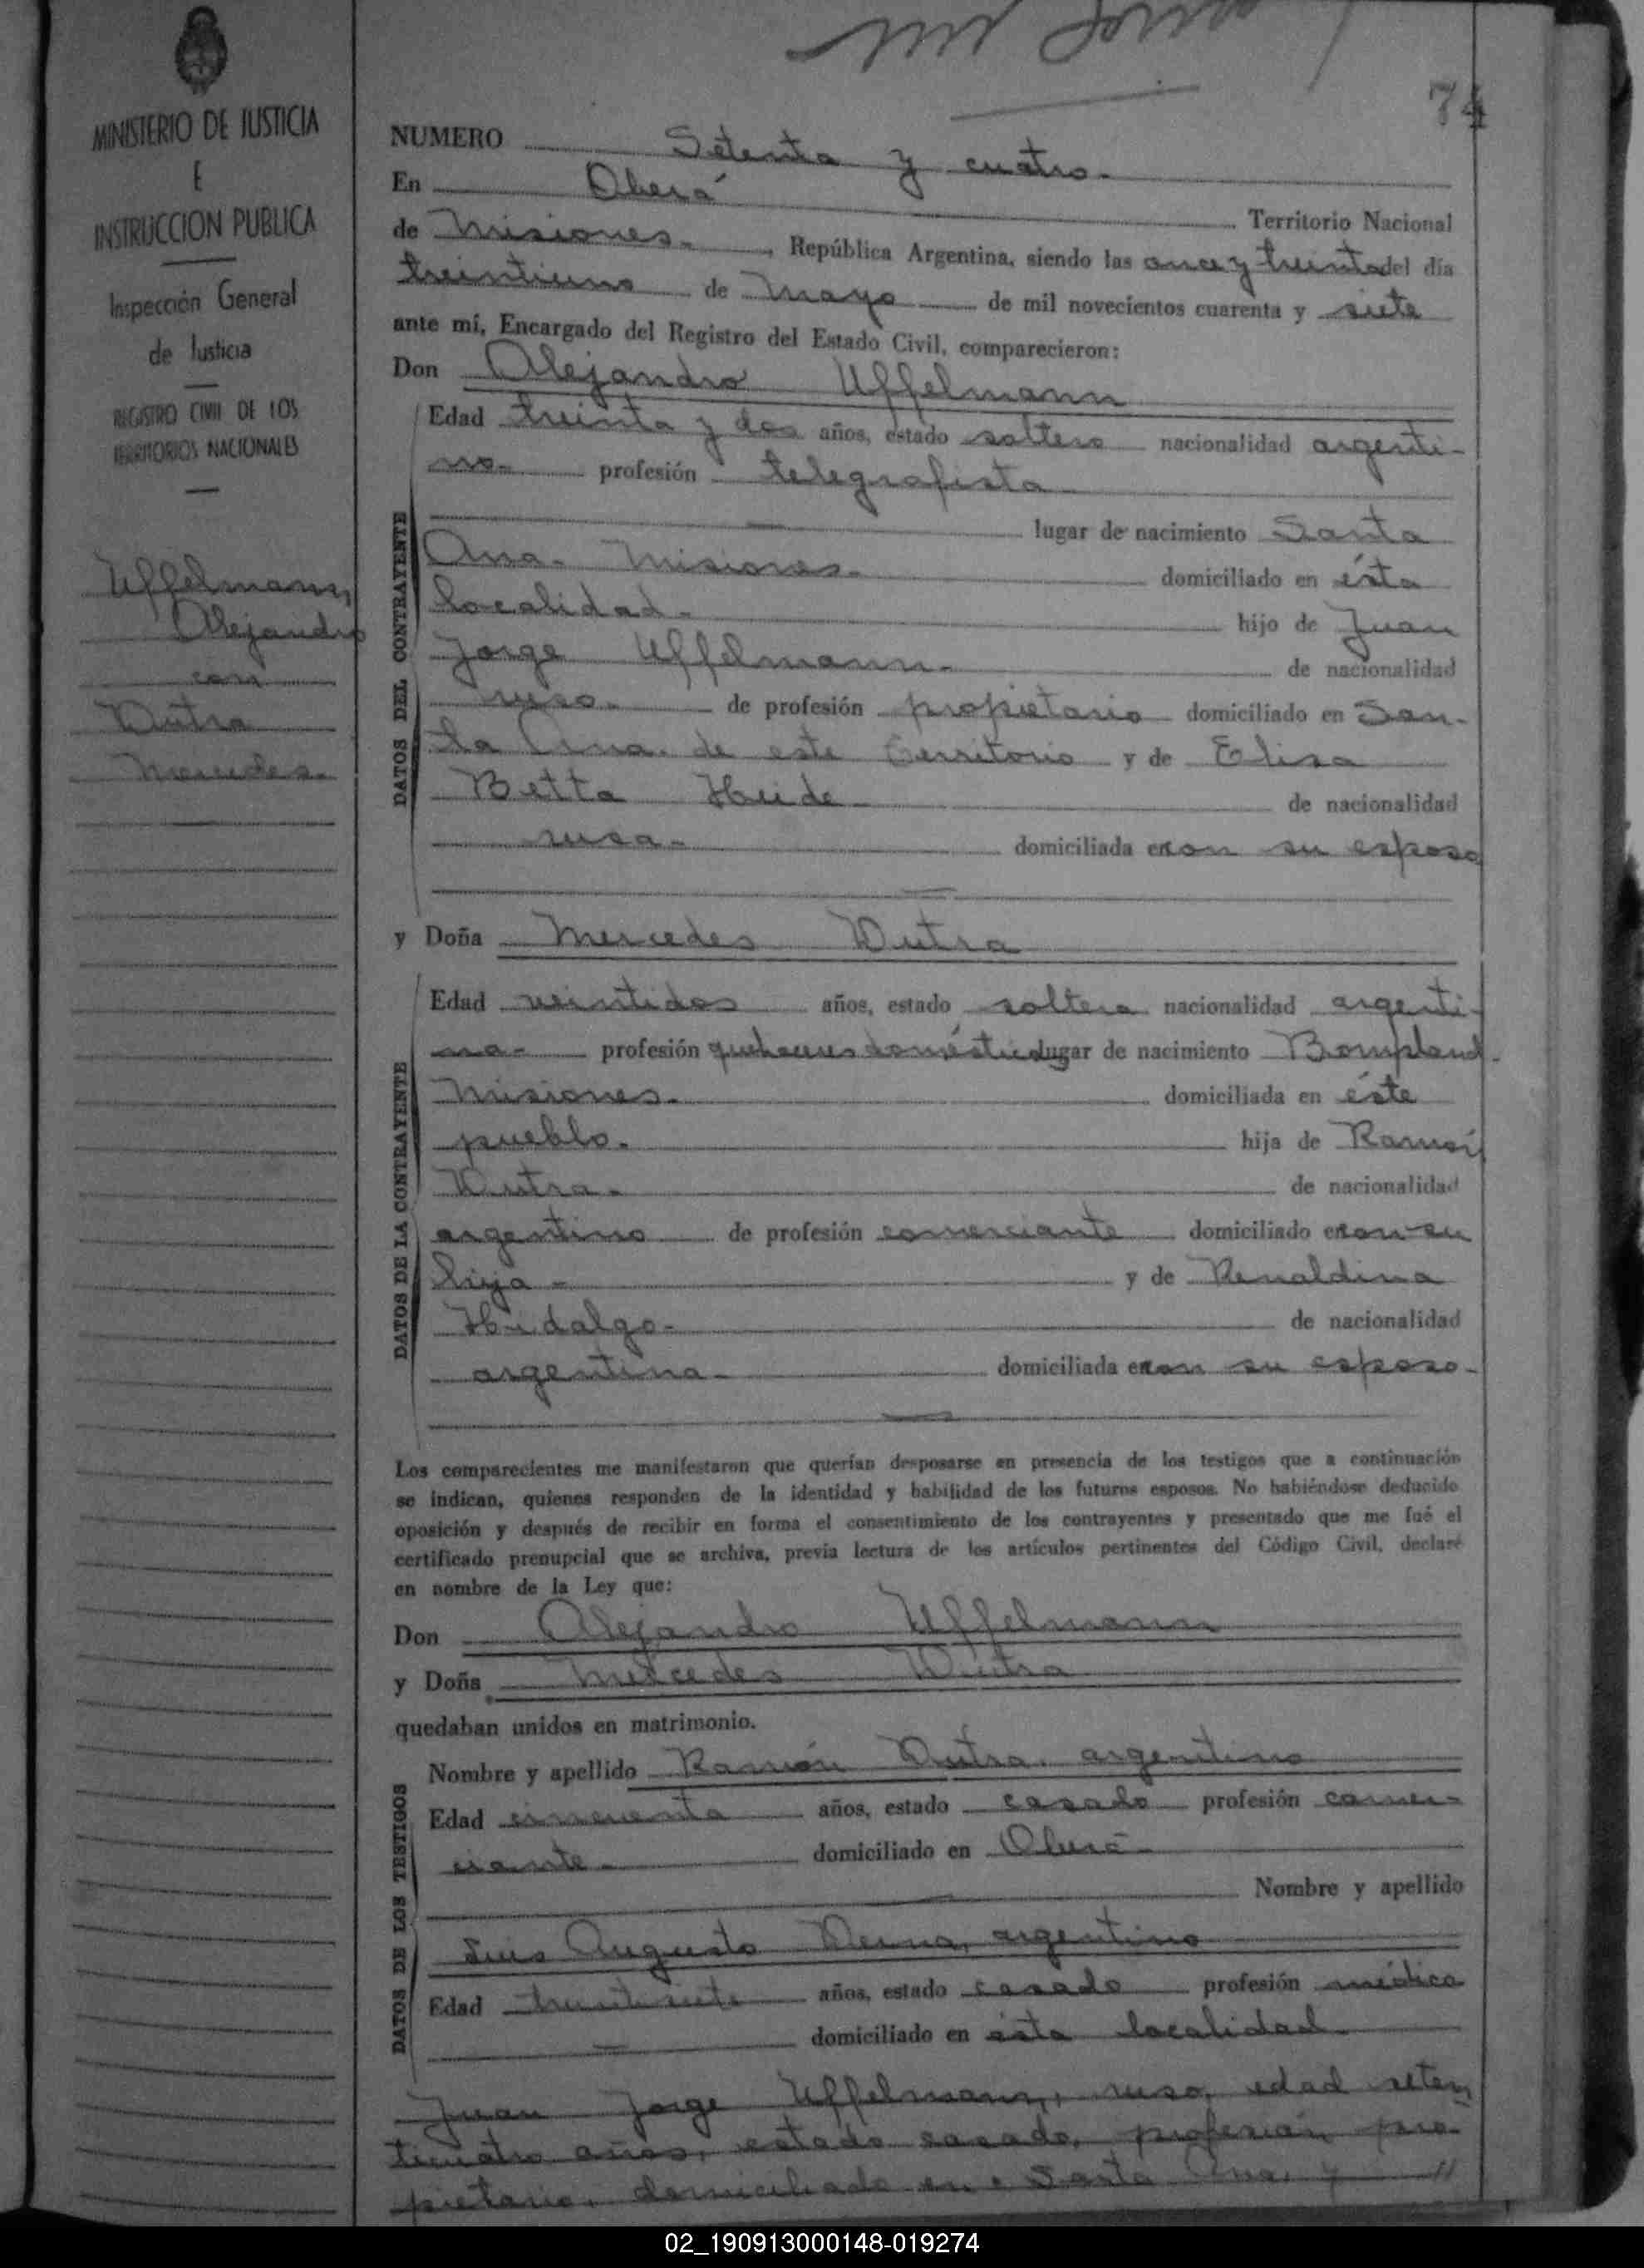 74
MINISTERIO DE JUSTICIA
E
INSTRUCCION PUBLICA
Inspección General
de Justicia
REGISTRO CIVIL DE LOS
TERRITORIOS NACIONALES
Uffelmann,
Alejandro
con
Dutra
Mercedes.
NUMERO Setenta y cuatro.
En Oberá Territorio Nacional
de Misiones. , República Argentina, siendo las once y treinta del día
treintiuno de Mayo de mil novecientos cuarenta y siete
ante mí, Encargado del Registro del Estado Civil, comparecieron:
Don Alejandro Uffelmann
DATOS DEL CONTRAYENTE
Edad treinta y dos años, estado soltero nacionalidad argenti-
no. profesión telegrafista
lugar de nacimiento Santa
Ana. Misiones. domiciliado en ésta
localidad. hijo de Juan
Jorge Uffelmann. de nacionalidad
ruso. de profesión propietario domiciliado en San-
ta Ana. de este Territorio y de Elisa
Betta Heide de nacionalidad
rusa. domiciliada en con su esposo
y Doña Mercedes Dutra
DATOS DE LA CONTRAYENTE
Edad veintidos años, estado soltera nacionalidad argenti-
na. profesión quehaceres domésticos lugar de nacimiento Bompland.
Misiones. domiciliada en éste
pueblo. hija de Ramón
Dutra. de nacionalidad
argentino de profesión comerciante domiciliado en con su
hija y de Renaldina
Hidalgo. de nacionalidad
argentina. domiciliada en con su esposo.
Los comparecientes me manifestaron que querían desposarse en presencia de los testigos que a continuación
se indican, quienes responden de la identidad y habilidad de los futuros esposos. No habiéndose deducido
oposición y después de recibir en forma el consentimiento de los contrayentes y presentado que me fué el
certificado prenupcial que se archiva, previa lectura de los artículos pertinentes del Código Civil, declaré
en nombre de la Ley que:
Don Alejandro Uffelmann
y Doña Mercedes Dutra
quedaban unidos en matrimonio.
DATOS DE LOS TESTIGOS
Nombre y apellido Ramón Dutra. argentino
Edad cincuenta años, estado casado profesión comer-
ciante. domiciliado en Oberá
Nombre y apellido
Luis Augusto argentino
Edad treintisiete años, estado casado profesión médico
domiciliado en ésta localidad.
Juan Jorge Uffelmann, ruso, edad seten
ticuatro años, estado casado, profesión, pro-
pietario, domiciliado en Santa Ana. y //
02_190913000148-019274